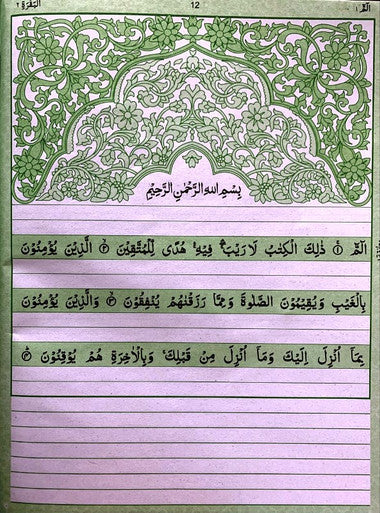 الٓمّٓ ۱ 12 الْبَقَرَة ۲
بِسْمِ اللهِ الرَّحْمٰنِ الرَّحِيْمِ
الٓمّٓ ۚ﴿۱﴾ ذٰلِكَ الْكِتٰبُ لَا رَيْبَ ۛۖ فِيْهِ ۛۚ هُدًى لِّلْمُتَّقِيْنَ ۙ﴿۲﴾ الَّذِيْنَ يُؤْمِنُوْنَ
بِالْغَيْبِ وَيُقِيْمُوْنَ الصَّلٰوةَ وَمِمَّا رَزَقْنٰهُمْ يُنْفِقُوْنَ ۙ﴿۳﴾ وَالَّذِيْنَ يُؤْمِنُوْنَ
بِمَآ اُنْزِلَ اِلَيْكَ وَمَآ اُنْزِلَ مِنْ قَبْلِكَ ۚ وَبِالْاٰخِرَةِ هُمْ يُوْقِنُوْنَ ؕ﴿۴﴾